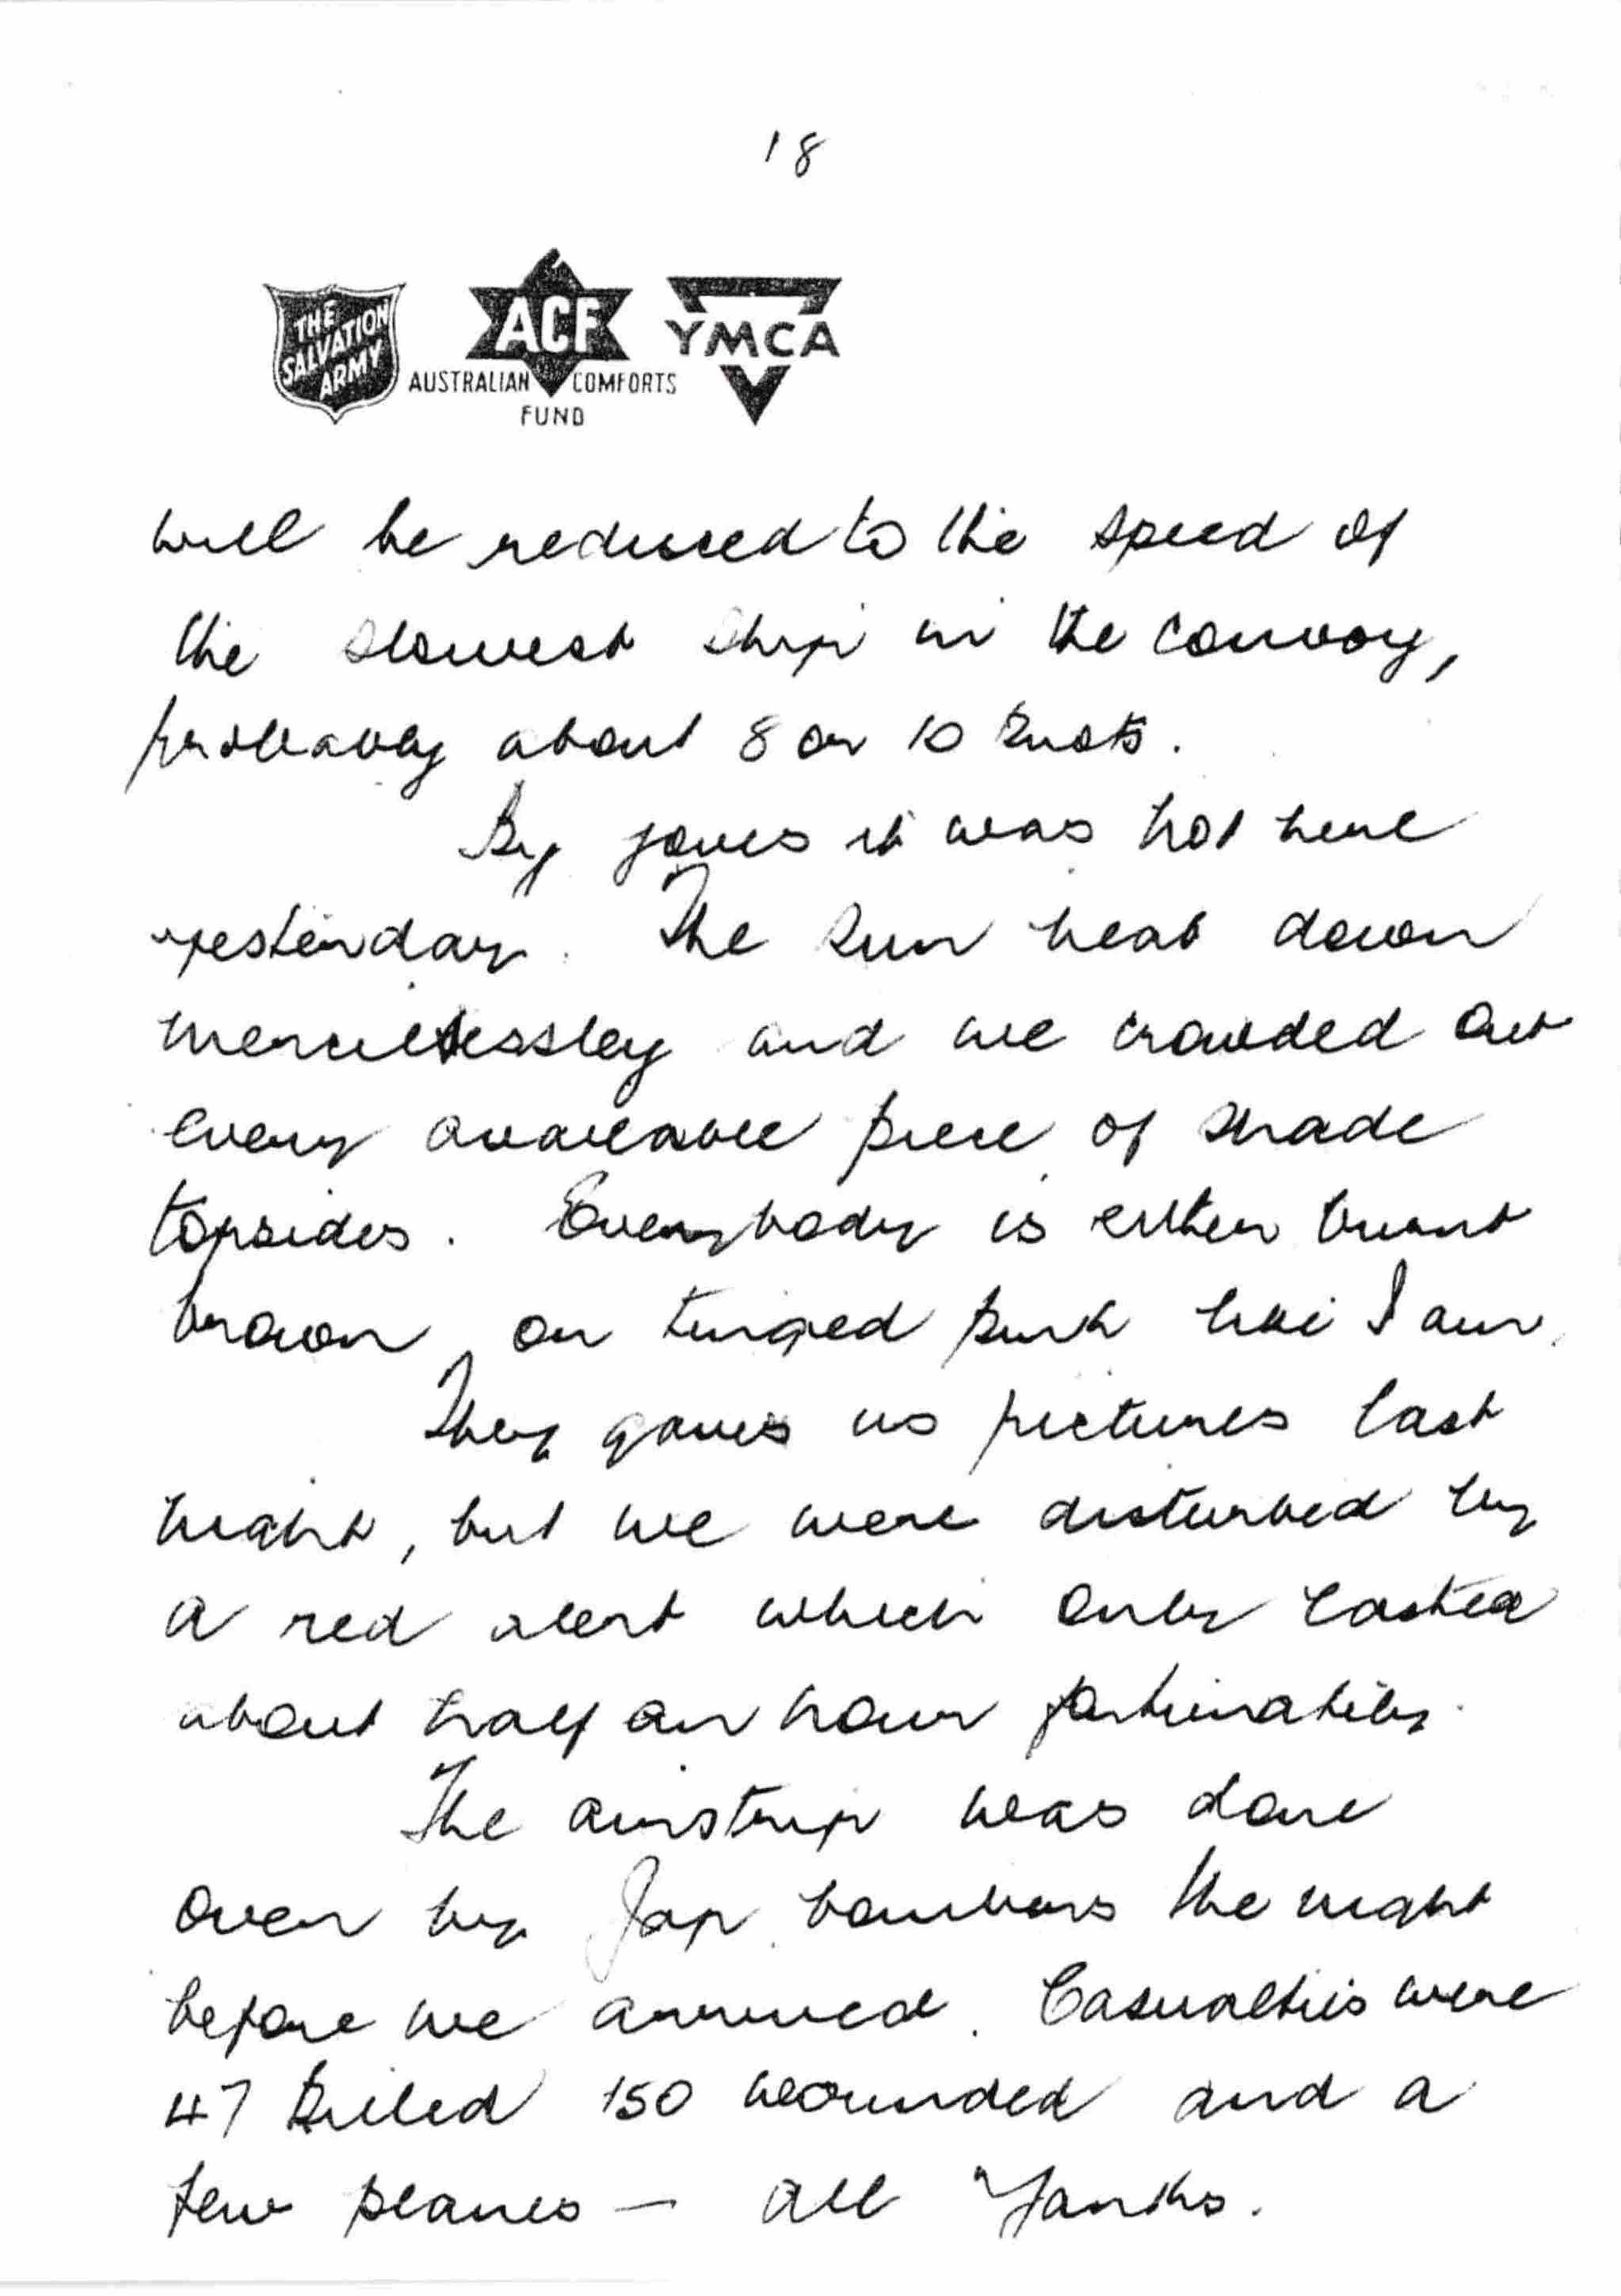 18
THE
SALVATION
ARMY
ACF
AUSTRALIAN COMFORTS
FUND
YMCA
will be reduced to the speed of
the slowest ship in the convoy,
probably about 8 or 10 knots.
By joves it was hot here
yesterday. The sun beat down
mercilessley and we crowded out
every available piece of shade
topsides. Everybody is either burnt
brown or tinged pink like I am.
They gaves us pictures last
night, but we were disturbed by
a red alert which only lasted
about half an hour fortunatily.
The airstrip was done
over by Jap bombers the night
before we arrived. Casualties were
47 killed 150 wounded and a
few planes — all Yanks.